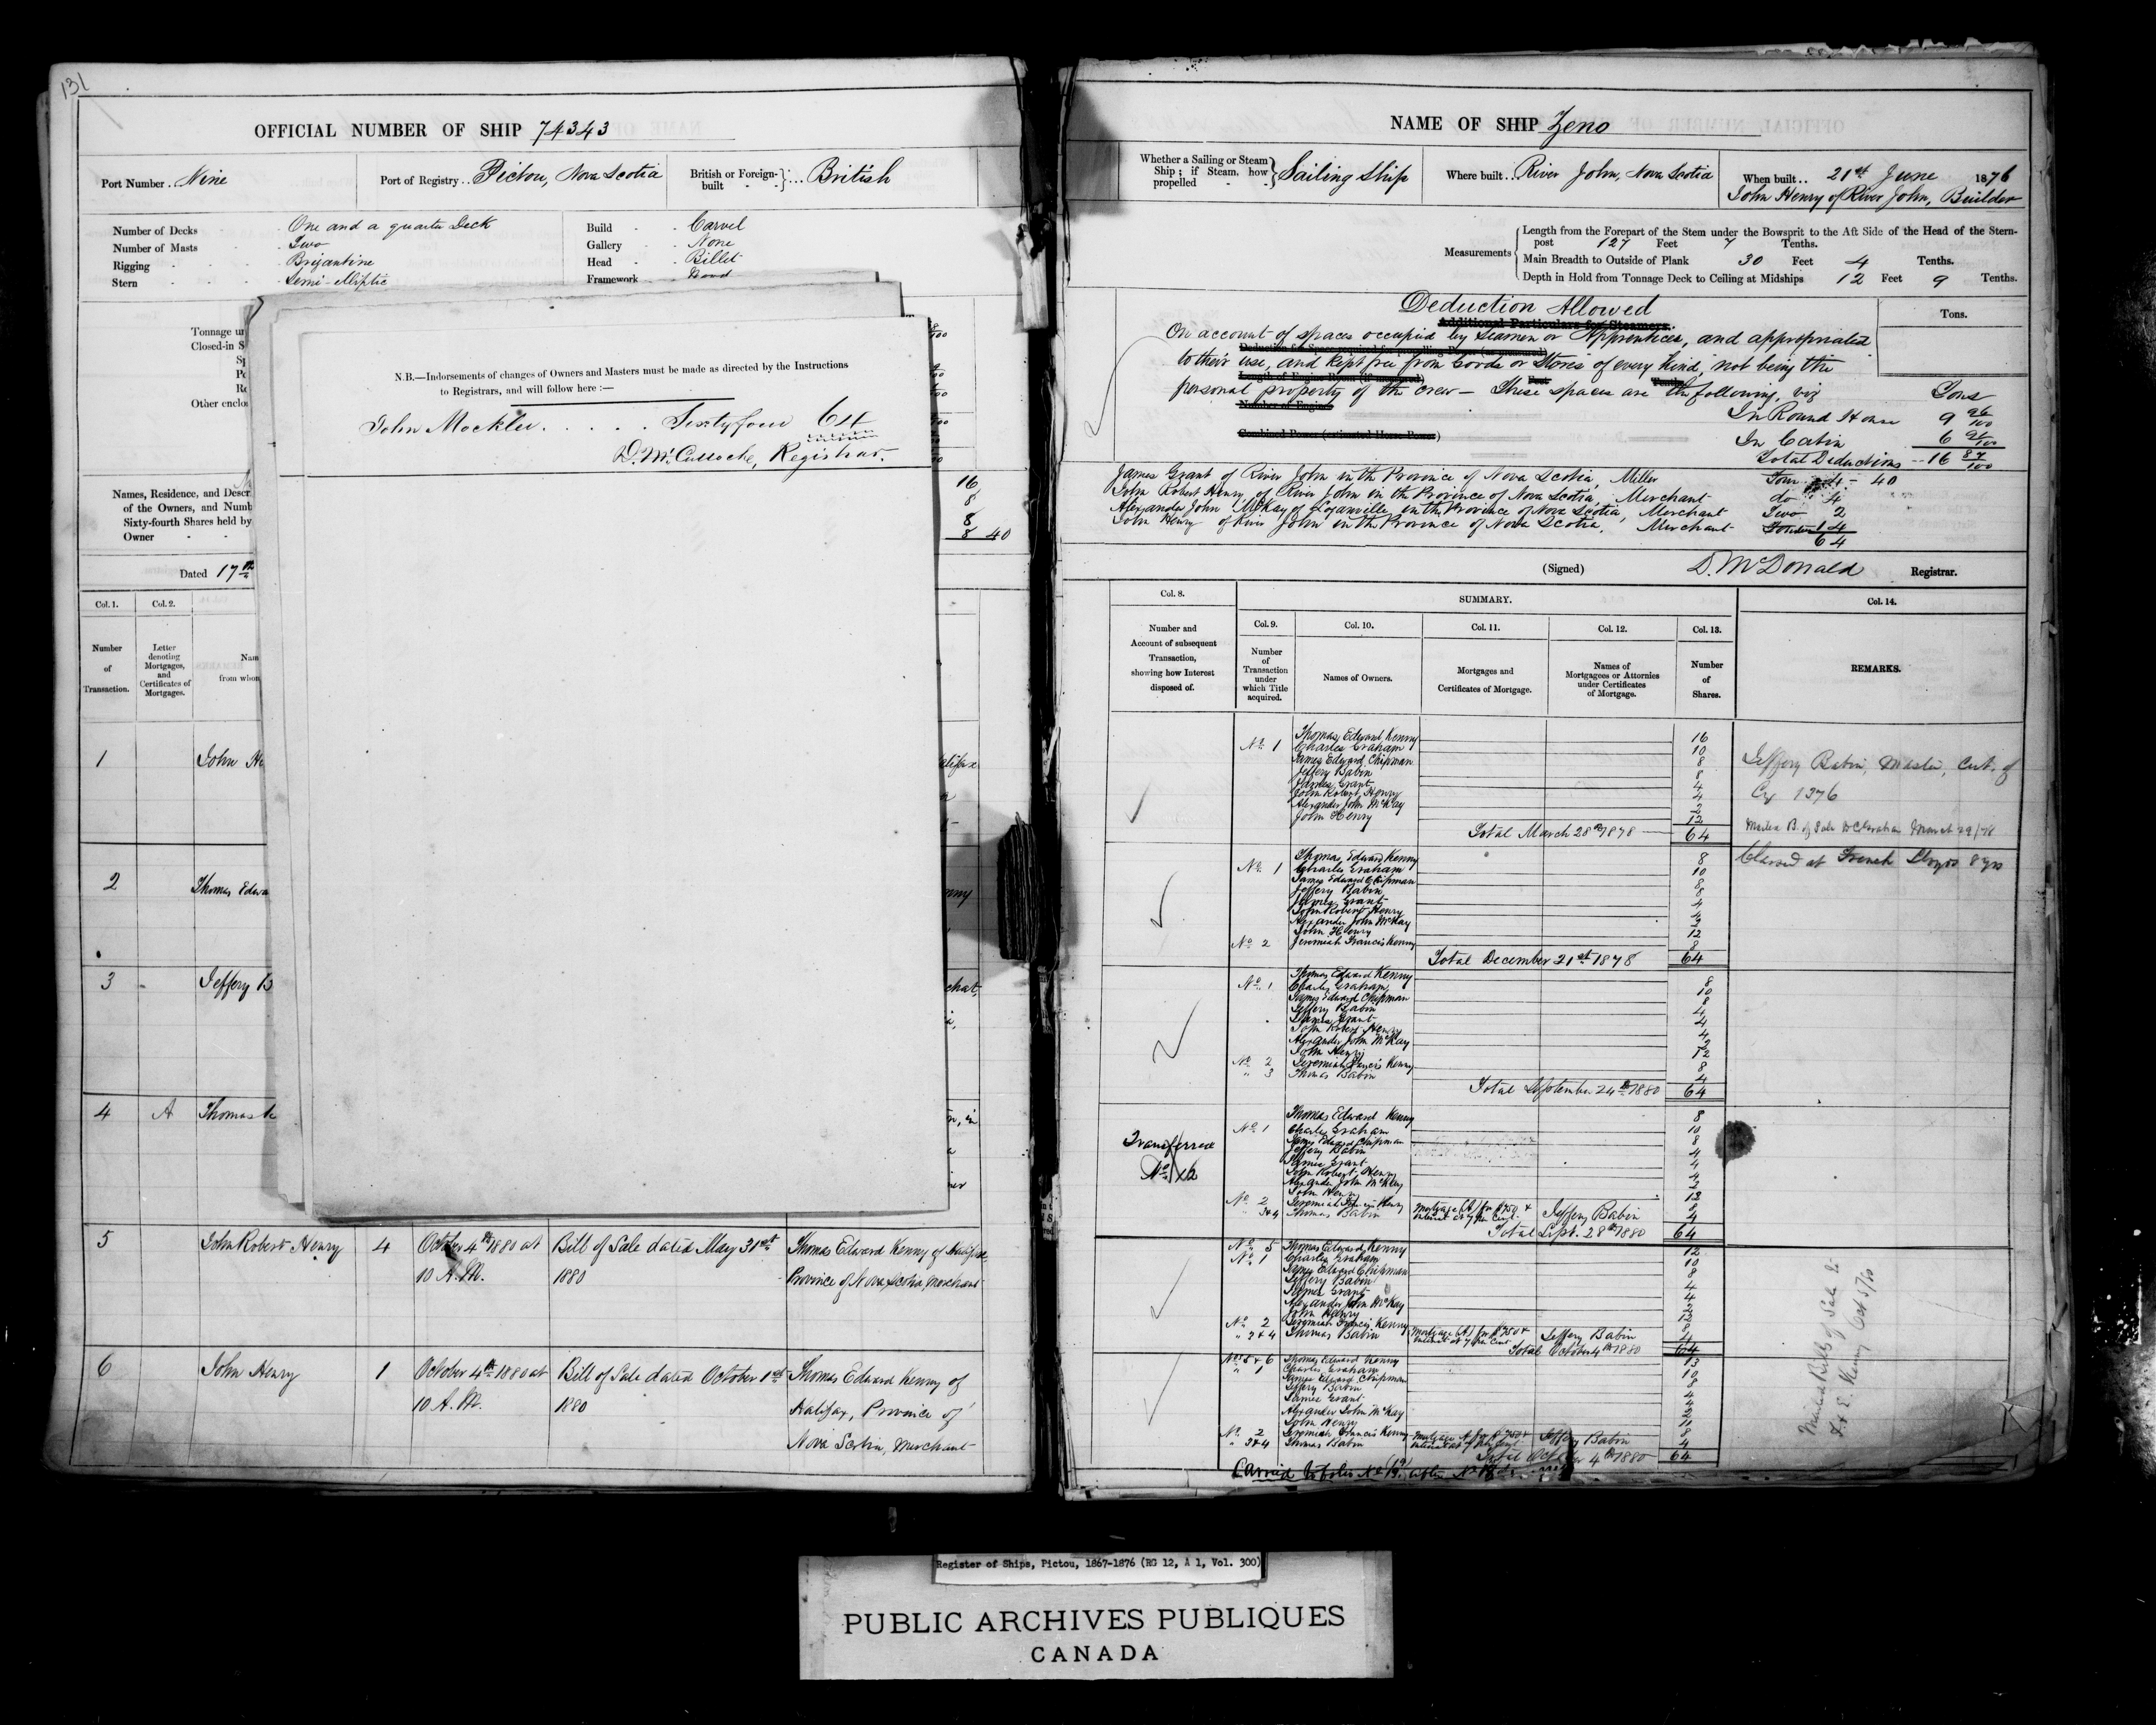 131
OFFICIAL NUMBER OF SHIP 74343
Port Number . Nine
Port of Registry . . Pictou, Nova Scotia
British or Foreign-built British
Number of Decks One and a quarter Deck
Number of Masts Two
Rigging Brigantine
Stern Semi-elliptic
Build Carvel
Gallery None
Head Billet
Framework Wood
Tonnage un
Closed-in S
Other enclo
N.B.—Indorsements of changes of Owners and Masters must be made as directed by the Instructions
to Registrars, and will follow here :—
John Mockler . . . . . Sixtyfour 64
D. McCulloche, Registrar.
Names, Residence, and Descr
of the Owners, and Numb
Sixty-fourth Shares held by
Owner
16
8
8
8 40
Dated 17th
Col. 1.
Col. 2.
Number of Transaction.
Letter denoting Mortgages, and Certificates of Mortgages.
Nam
from whom
1 John He
2 Thomas Edwa
3 Jeffery B
4 A Thomas
5 John Robert Henry 4 October 4th 1880 at Bill of Sale dated May 31st Thomas Edward Kenny of Halifax,
10 A.M. 1880 Province of Nova Scotia, Merchant
6 John Henry 1 October 4th 1880 at Bill of Sale dated October 1st Thomas Edward Kenny of
10 A.M. 1880 Halifax, Province of
Nova Scotia, Merchant
NAME OF SHIP Zeno
Whether a Sailing or Steam Ship; if Steam, how propelled Sailing Ship
Where built . . River John, Nova Scotia
When built . . 21st June 1876
John Henry of River John, Builder
Measurements
Length from the Forepart of the Stem under the Bowsprit to the Aft Side of the Head of the Stern-
post 127 Feet 7 Tenths.
Main Breadth to Outside of Plank 30 Feet 4 Tenths.
Depth in Hold from Tonnage Deck to Ceiling at Midships 12 Feet 9 Tenths.
Deduction Allowed
Additional Particulars for Steamers.
Tons.
On account of spaces occupied by Seamen or Apprentices, and appropriated
to their use, and kept free from Goods or Stores of every kind, not being the
personal property of the crew – These spaces are the following, viz
Tons
In Round House 9 96/100
In Cabin 6 91/100
Total Deductions -- 16 87/100
James Grant of River John in the Province of Nova Scotia, Miller Four 4 – 40
John Robert Henry of River John in the Province of Nova Scotia, Merchant do 4
Alexander John McKay of Loganville in the Province of Nova Scotia, Merchant Two 2
John Henry of River John in the Province of Nova Scotia, Merchant 14
64
(Signed) D. McDonald Registrar.
Col. 8.
Number and Account of subsequent Transaction, showing how Interest disposed of.
SUMMARY.
Col. 9.
Number of Transaction under which Title acquired.
Col. 10.
Names of Owners.
Col. 11.
Mortgages and Certificates of Mortgage.
Col. 12.
Names of Mortgagees or Attornies under Certificates of Mortgage.
Col. 13.
Number of Shares.
Col. 14.
REMARKS.
No. 1 Thomas Edward Kenny 16
Charles Graham 10
James Edward Chipman 8
Jeffery Babin 8
James Grant 4
John Robert Henry 4
Alexander John McKay 2
John Henry 12
Total March 28th 1878 64
Jeffery Babin, Master, Cert. of
Cy 1376
March 29/78
Classed at French Lloyds 8 yrs
No. 1 Thomas Edward Kenny 8
Charles Graham 10
James Edward Chipman 8
Jeffery Babin 8
James Grant 4
John Robert Henry 4
Alexander John McKay 2
John Henry 12
No. 2 Jeremiah Francis Kenny 8
Total December 21st 1878 64
No. 1 Thomas Edward Kenny 8
Charles Graham 10
James Edward Chipman 8
Jeffery Babin 4
James Grant 4
John Robert Henry 4
Alexander John McKay 2
John Henry 12
No. 2 Jeremiah Francis Kenny 8
" 3 Thomas Babin 4
Total September 24th 1880 64
Transferred
No. 12
Thomas Edward Kenny 8
No. 1 Charles Graham 10
James Edward Chipman 8
Jeffery Babin 4
James Grant 4
John Robert Henry 4
Alexander John McKay 2
John Henry 12
No. 2 Jeremiah Francis Kenny 8
" 3&4 Thomas Babin Mortgage (A) for $750 & Interest at 7 per Cent Jeffery Babin 4
Total Sept. 28th 1880 64
No. 5 Thomas Edward Kenny 12
No. 1 Charles Graham 10
James Edward Chipman 8
Jeffery Babin 4
James Grant 4
Alexander John McKay 2
John Henry 12
No. 2 Jeremiah Francis Kenny 8
" 3&4 Thomas Babin Mortgage (A) for $750 & Interest at 7 per Cent Jeffery Babin 4
Total October 4th 1880 64
Nos. 5 & 6 Thomas Edward Kenny 13
" 1 Charles Graham 10
James Edward Chipman 8
Jeffery Babin 4
James Grant 4
Alexander John McKay 2
John Henry 11
No. 2 Jeremiah Francis Kenny 8
" 3&4 Thomas Babin Mortgage A for $750 & Interest at 7 per Cent Jeffery Babin 4
Total October 4th 1880 64
Mailed Bills of Sale to
T. E. Kenny Oct 5/80
Carried to folio No.
Register of Ships, Pictou, 1867-1876 (RG 12, A 1, Vol. 300)
PUBLIC ARCHIVES PUBLIQUES
CANADA